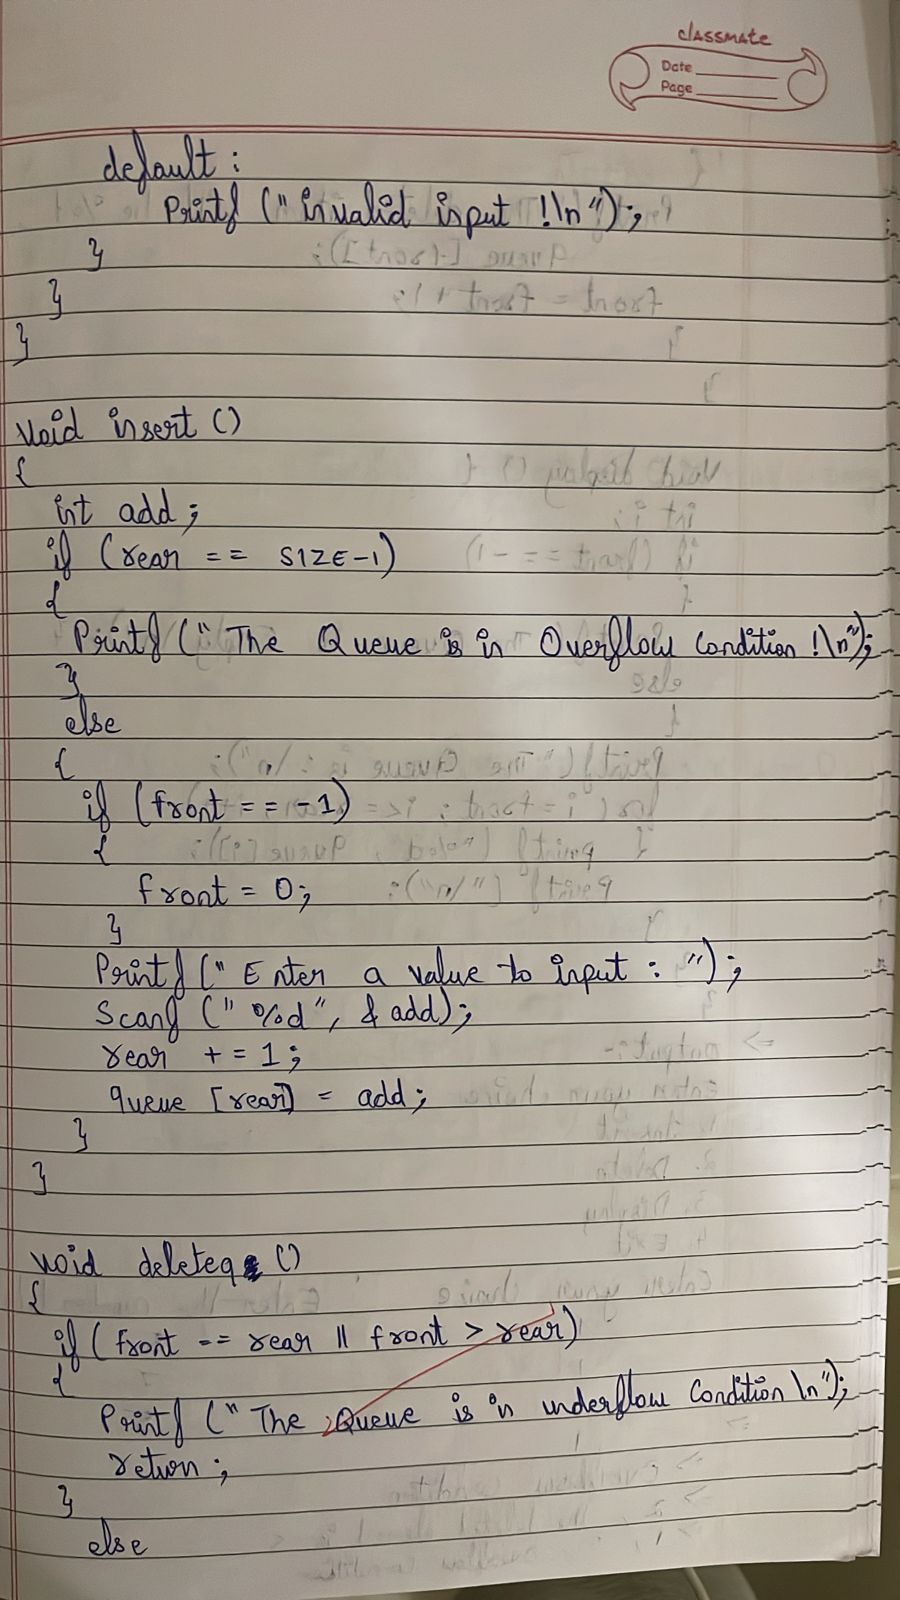 classmate
Date
Page
default :
printf (" invalid input !\n");
}
}
}
void insert ()
{
int add;
if (rear == SIZE-1)
{
Printf (" The Queue is in Overflow Condition !\n");
}
else
{
if (front == -1)
{
front = 0;
}
Printf (" Enter a value to input : ");
Scanf (" %d", & add);
rear += 1;
queue [rear] = add;
}
}
void deleteq ()
{
if ( front == rear || front > rear)
{
Printf (" The Queue is in underflow Condition \n");
return ;
}
else